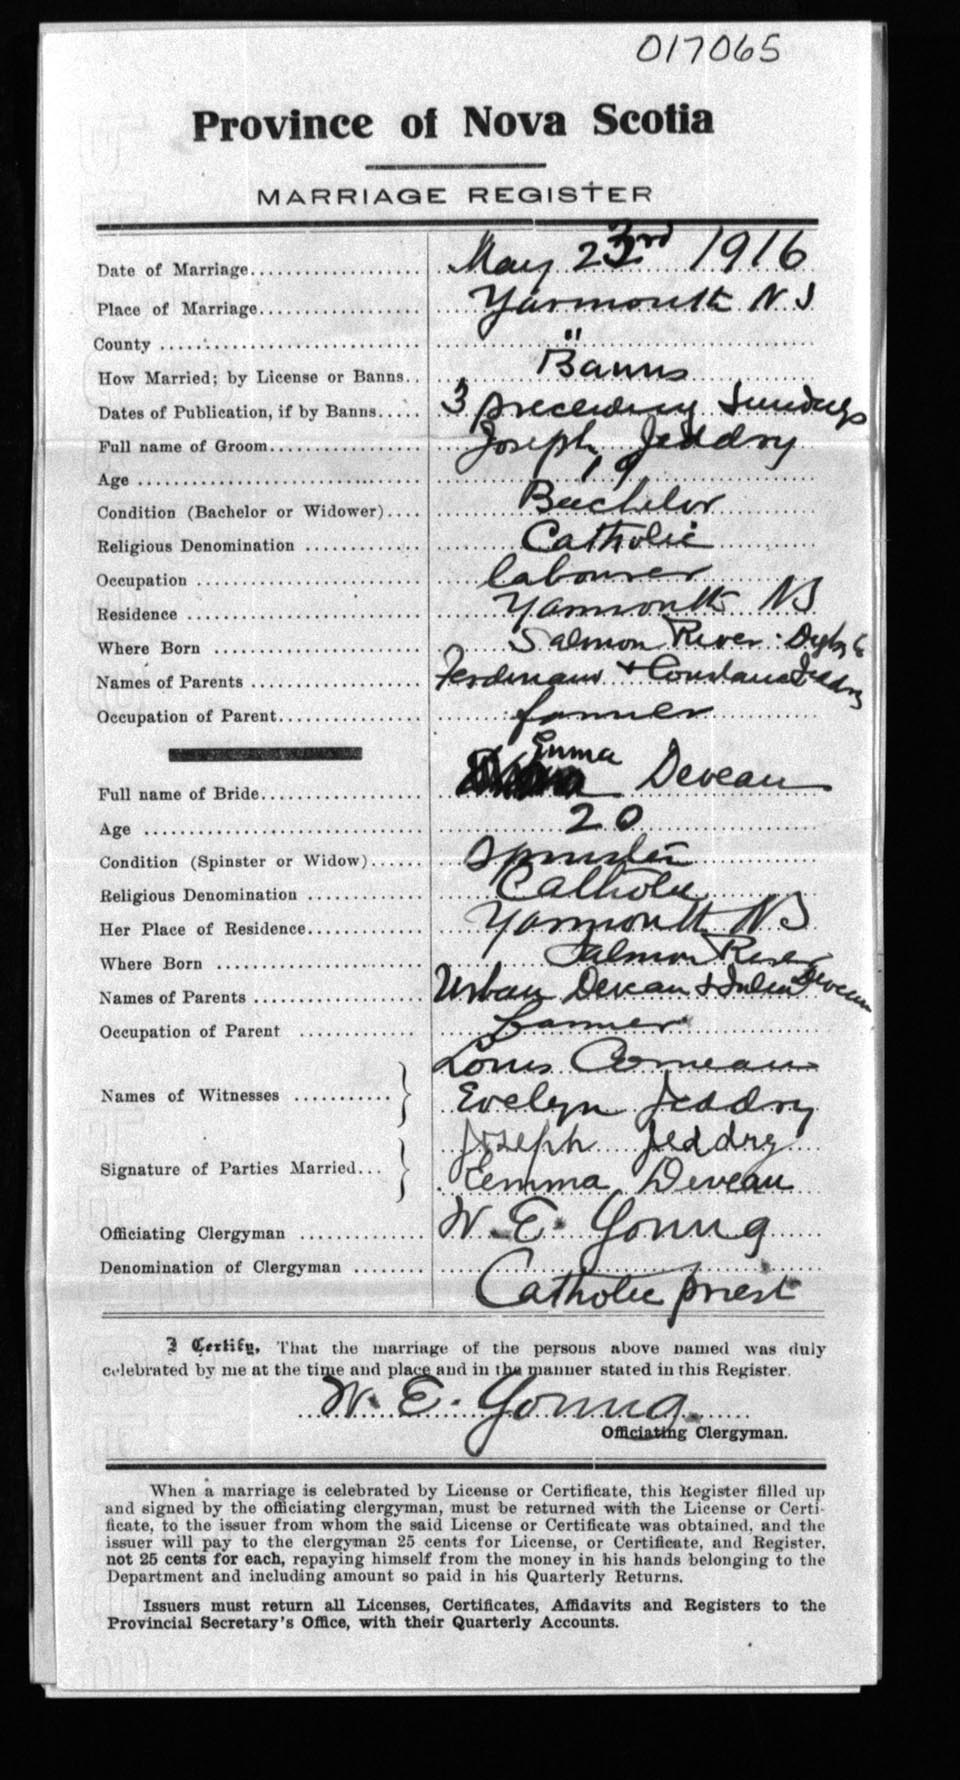 017065
Province of Nova Scotia
MARRIAGE REGISTER
Date of Marriage.................... May 23rd 1916
Place of Marriage................... Yarmouth N S
County ............................. "
How Married; by License or Banns.. Banns
Dates of Publication, if by Banns..... 3 preceding Sundays
Full name of Groom.................. Joseph Jeddry
Age ................................ 19
Condition (Bachelor or Widower).... Bachelor
Religious Denomination ............. Catholic
Occupation ......................... labourer
Residence .......................... Yarmouth NS
Where Born ......................... Salmon River. Digby
Names of Parents ................... Ferdinand & Constance Jeddry
Occupation of Parent................ farmer
Full name of Bride.................. Emma Deveau
Age ................................ 20
Condition (Spinster or Widow)...... Spinster
Religious Denomination ............. Catholic
Her Place of Residence............. Yarmouth NS
Where Born ......................... Salmon River
Names of Parents ................... Urban Deveau & Julia Deveau
Occupation of Parent ............. farmer
Louis Comeau
Names of Witnesses ........... Evelyn Jeddry
Joseph Jeddry
Signature of Parties Married... Emma Deveau
Officiating Clergyman ............. W. E. Young
Denomination of Clergyman ........ Catholic priest
I Certify, That the marriage of the persons above named was duly
celebrated by me at the time and place and in the manner stated in this Register.
W. E. Young
Officiating Clergyman.
When a marriage is celebrated by License or Certificate, this Register filled up
and signed by the officiating clergyman, must be returned with the License or Certi-
ficate, to the issuer from whom the said License or Certificate was obtained, and the
issuer will pay to the clergyman 25 cents for License, or Certificate, and Register,
not 25 cents for each, repaying himself from the money in his hands belonging to the
Department and including amount so paid in his Quarterly Returns.
Issuers must return all Licenses, Certificates, Affidavits and Registers to the
Provincial Secretary's Office, with their Quarterly Accounts.